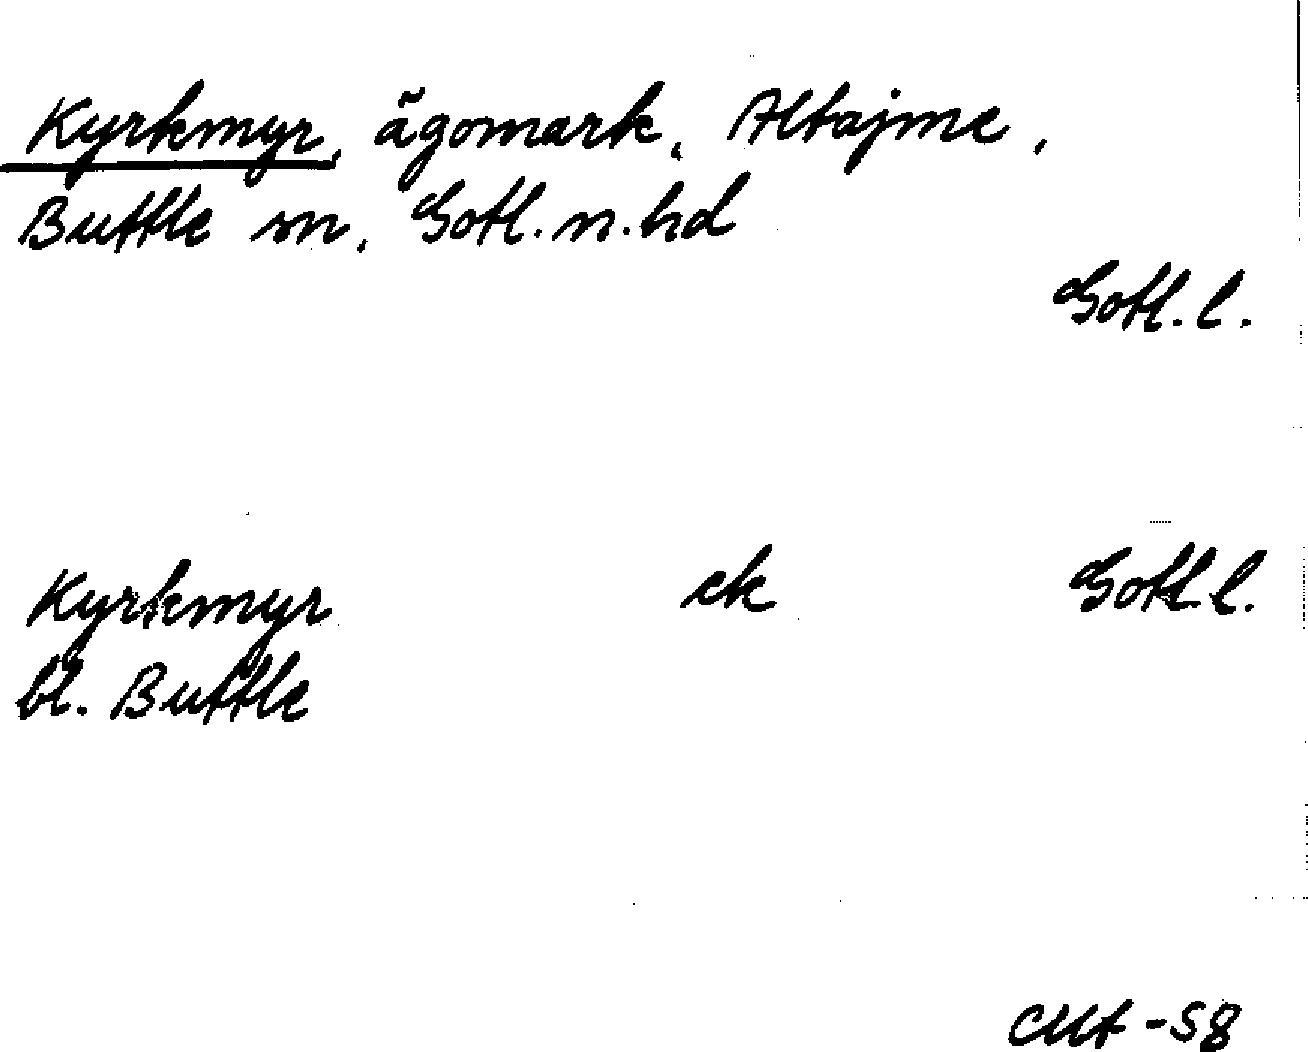 Kyrkmyr, ägomark, Altajme,
Buttle sn, Gotl. n. hd
Gotl. l.
Kyrkmyr ek Gotl. l.
bl. Buttle
CMt -58